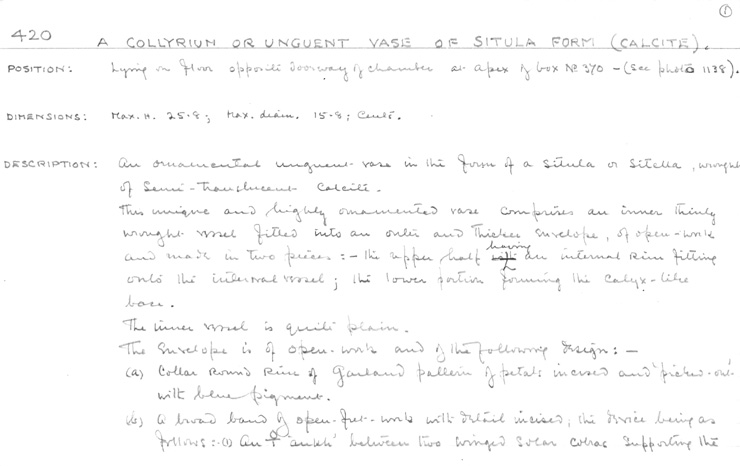 1
420 A COLLYRIUM OR UNGUENT VASE OF SITULA FORM (CALCITE).
POSITION: Lying on floor opposite doorway of chamber at apex of box No 370 - (see photo 1138).
DIMENSIONS: Max. H. 25.8; Max. diam. 15.8; Cents.
DESCRIPTION: An ornamental unguent-vase in the form of a Situla or Sitella, wrought
of Semi-translucent Calcite.
This unique and highly ornamented vase comprises an inner thinly
wrought vessel fitted into an outer and thicker envelope, of open-work
and made in two pieces:- the upper half having an internal rim fitting
onto the internal vessel; the lower portion forming the Calyx-like
base.
The inner vessel is quite plain.
The Envelope is of open-work and of the following design:-
(a) Collar round Rim of Garland pattern of petals incised and 'picked-out'
with blue pigment.
(b) A broad band of open-fret-work with detail incised; the device being as
follows:- (1) An ☥ 'ankh' between two winged Solar cobras supporting the